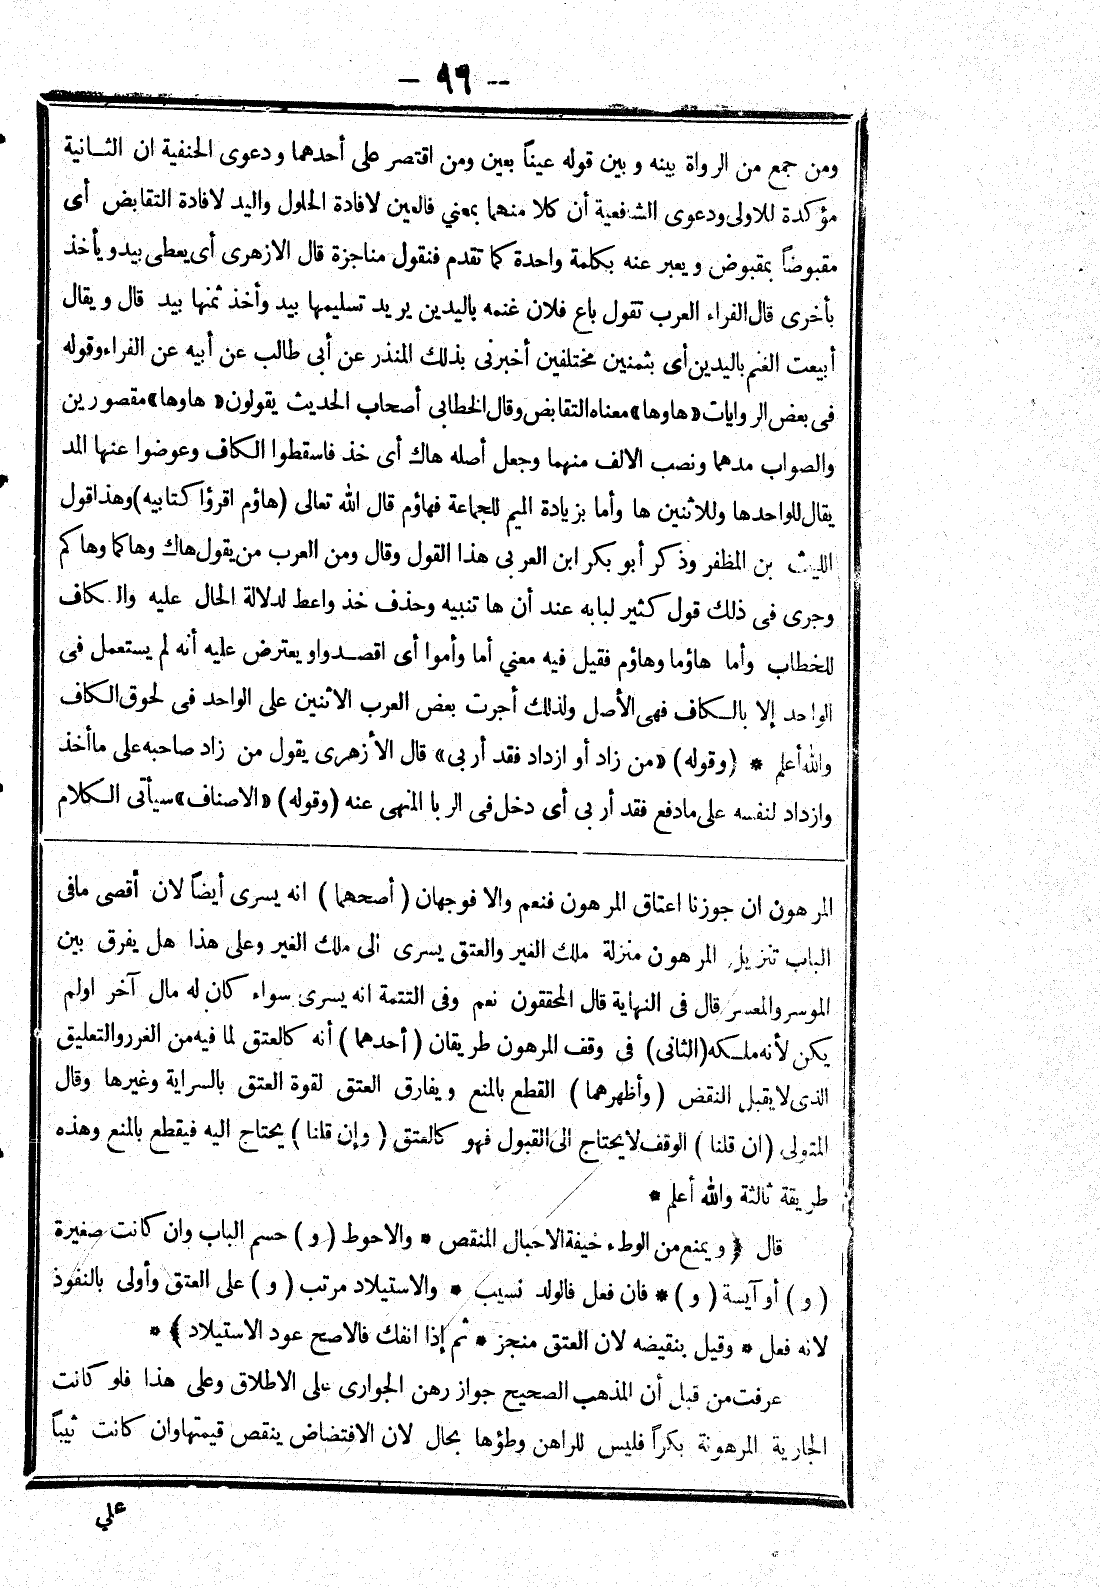 -- ٩٩ --
ومن جمع من الرواة بينه وبين قوله عيناً بعين ومن اقتصر على أحدهما ودعوى الحنفية ان الثانية
مؤكدة للاولى ودعوى الشافعية أن كلا منهما بمعني فالعين لافادة الحلول واليد لافادة التقابض أى
مقبوضاً بمقبوض ويعبر عنه بكلمة واحدة كما تقدم فنقول مناجزة قال الازهرى أى يعطى بيد ويأخذ
بأخرى قال الفراء العرب تقول باع فلان غنمه باليدين يريد تسليمها بيد وأخذ ثمنها بيد قال ويقال
أبيعت الغنم باليدين أى بثمنين مختلفين أخبرنى بذلك المنذر عن أبى طالب عن أبيه عن الفراء وقوله
فى بعض الروايات «هاوها» معناه التقابض وقال الخطابى أصحاب الحديث يقولون «هاوها» مقصورين
والصواب مدهما ونصب الالف منهما وجعل أصله هاك أى خذ فاسقطوا الكاف وعوضوا عنها المد
يقال للواحد ها وللاثنين ها وأما بزيادة الميم للجماعة فهاؤم قال الله تعالى (هاؤم اقرؤا كتابيه) وهذا قول
الليث بن المظفر وذكر أبو بكر ابن العربى هذا القول وقال ومن العرب من يقول هاك وهاكما وهاكم
وجرى فى ذلك قول كثير لبابه عند أن ها تنبيه وحذف خذ واعط لدلالة الحال عليه والكاف
للخطاب وأما هاؤما وهاؤم فقيل فيه معني أما وأموا أى اقصدوا ويعترض عليه أنه لم يستعمل فى
الواحد إلا بالكاف فهى الأصل ولذلك أجرت بعض العرب الاثنين على الواحد فى لحوق الكاف
والله أعلم * (وقوله) «من زاد أو ازداد فقد أربى» قال الأزهرى يقول من زاد صاحبه على ما أخذ
وازداد لنفسه على ما دفع فقد أربى أى دخل فى الربا المنهى عنه (وقوله) «الاصناف» سيأتى الكلام
المرهون ان جوزنا اعتاق المرهون فنعم والا فوجهان (أصحهما) انه يسرى أيضاً لان أقصى مافى
الباب تنزيل المرهون منزلة ملك الغير والعتق يسرى الى ملك الغير وعلى هذا هل يفرق بين
الموسر والمعسر قال فى النهاية قال المحققون نعم وفى التتمة انه يسرى سواء كان له مال آخر اولم
يكن لأنه ملكه (الثانى) فى وقف المرهون طريقان (أحدهما) أنه كالعتق لما فيه من الغرر والتعليق
الذى لا يقبل النقض (وأظهرهما) القطع بالمنع ويفارق العتق لقوة العتق بالسراية وغيرها وقال
المتولى (ان قلنا) الوقف لا يحتاج الى القبول فهو كالعتق (وإن قلنا) يحتاج اليه فيقطع بالمنع وهذه
طريقة ثالثة والله أعلم *
قال ﴿ ويمنع من الوطء خيفة الاحبال المنقص * والاحوط (و) حسم الباب وان كانت صغيرة
(و) أو آيسة (و) * فان فعل فالولد نسيب * والاستيلاد مرتب (و) على العتق وأولى بالنفوذ
لانه فعل * وقيل بنقيضه لان العتق منجز * ثم إذا انفك فالاصح عود الاستيلاد ﴾ *
عرفت من قبل أن المذهب الصحيح جواز رهن الجوارى على الاطلاق وعلى هذا فلو كانت
الجارية المرهونة بكراً فليس للراهن وطؤها بحال لان الافتضاض ينقص قيمتها وان كانت ثيباً
علي